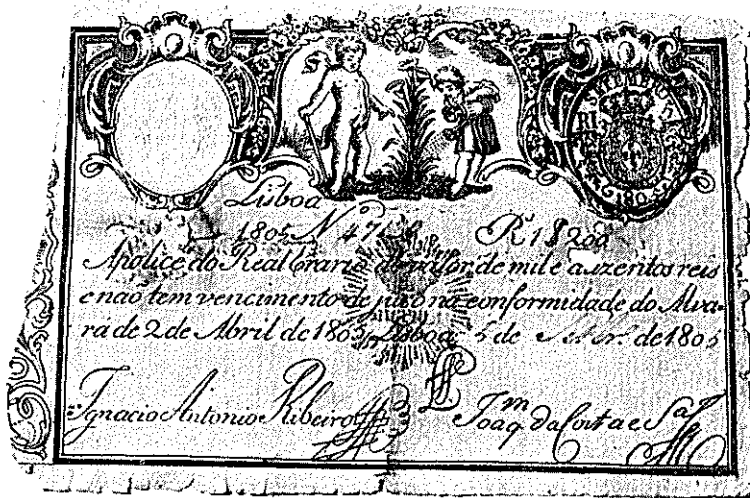 Lisboa
1805 N 47 R 1$200
Apolice do Real Erario do valor de mil e duzentos reis
e não tem vencimento de juro na conformidade do Alva-
rá de 2 de Abril de 1805 Lisboa 5 de de 1805
Ignacio Antonio Ribeiro
Joaq.m da Costa e S.a